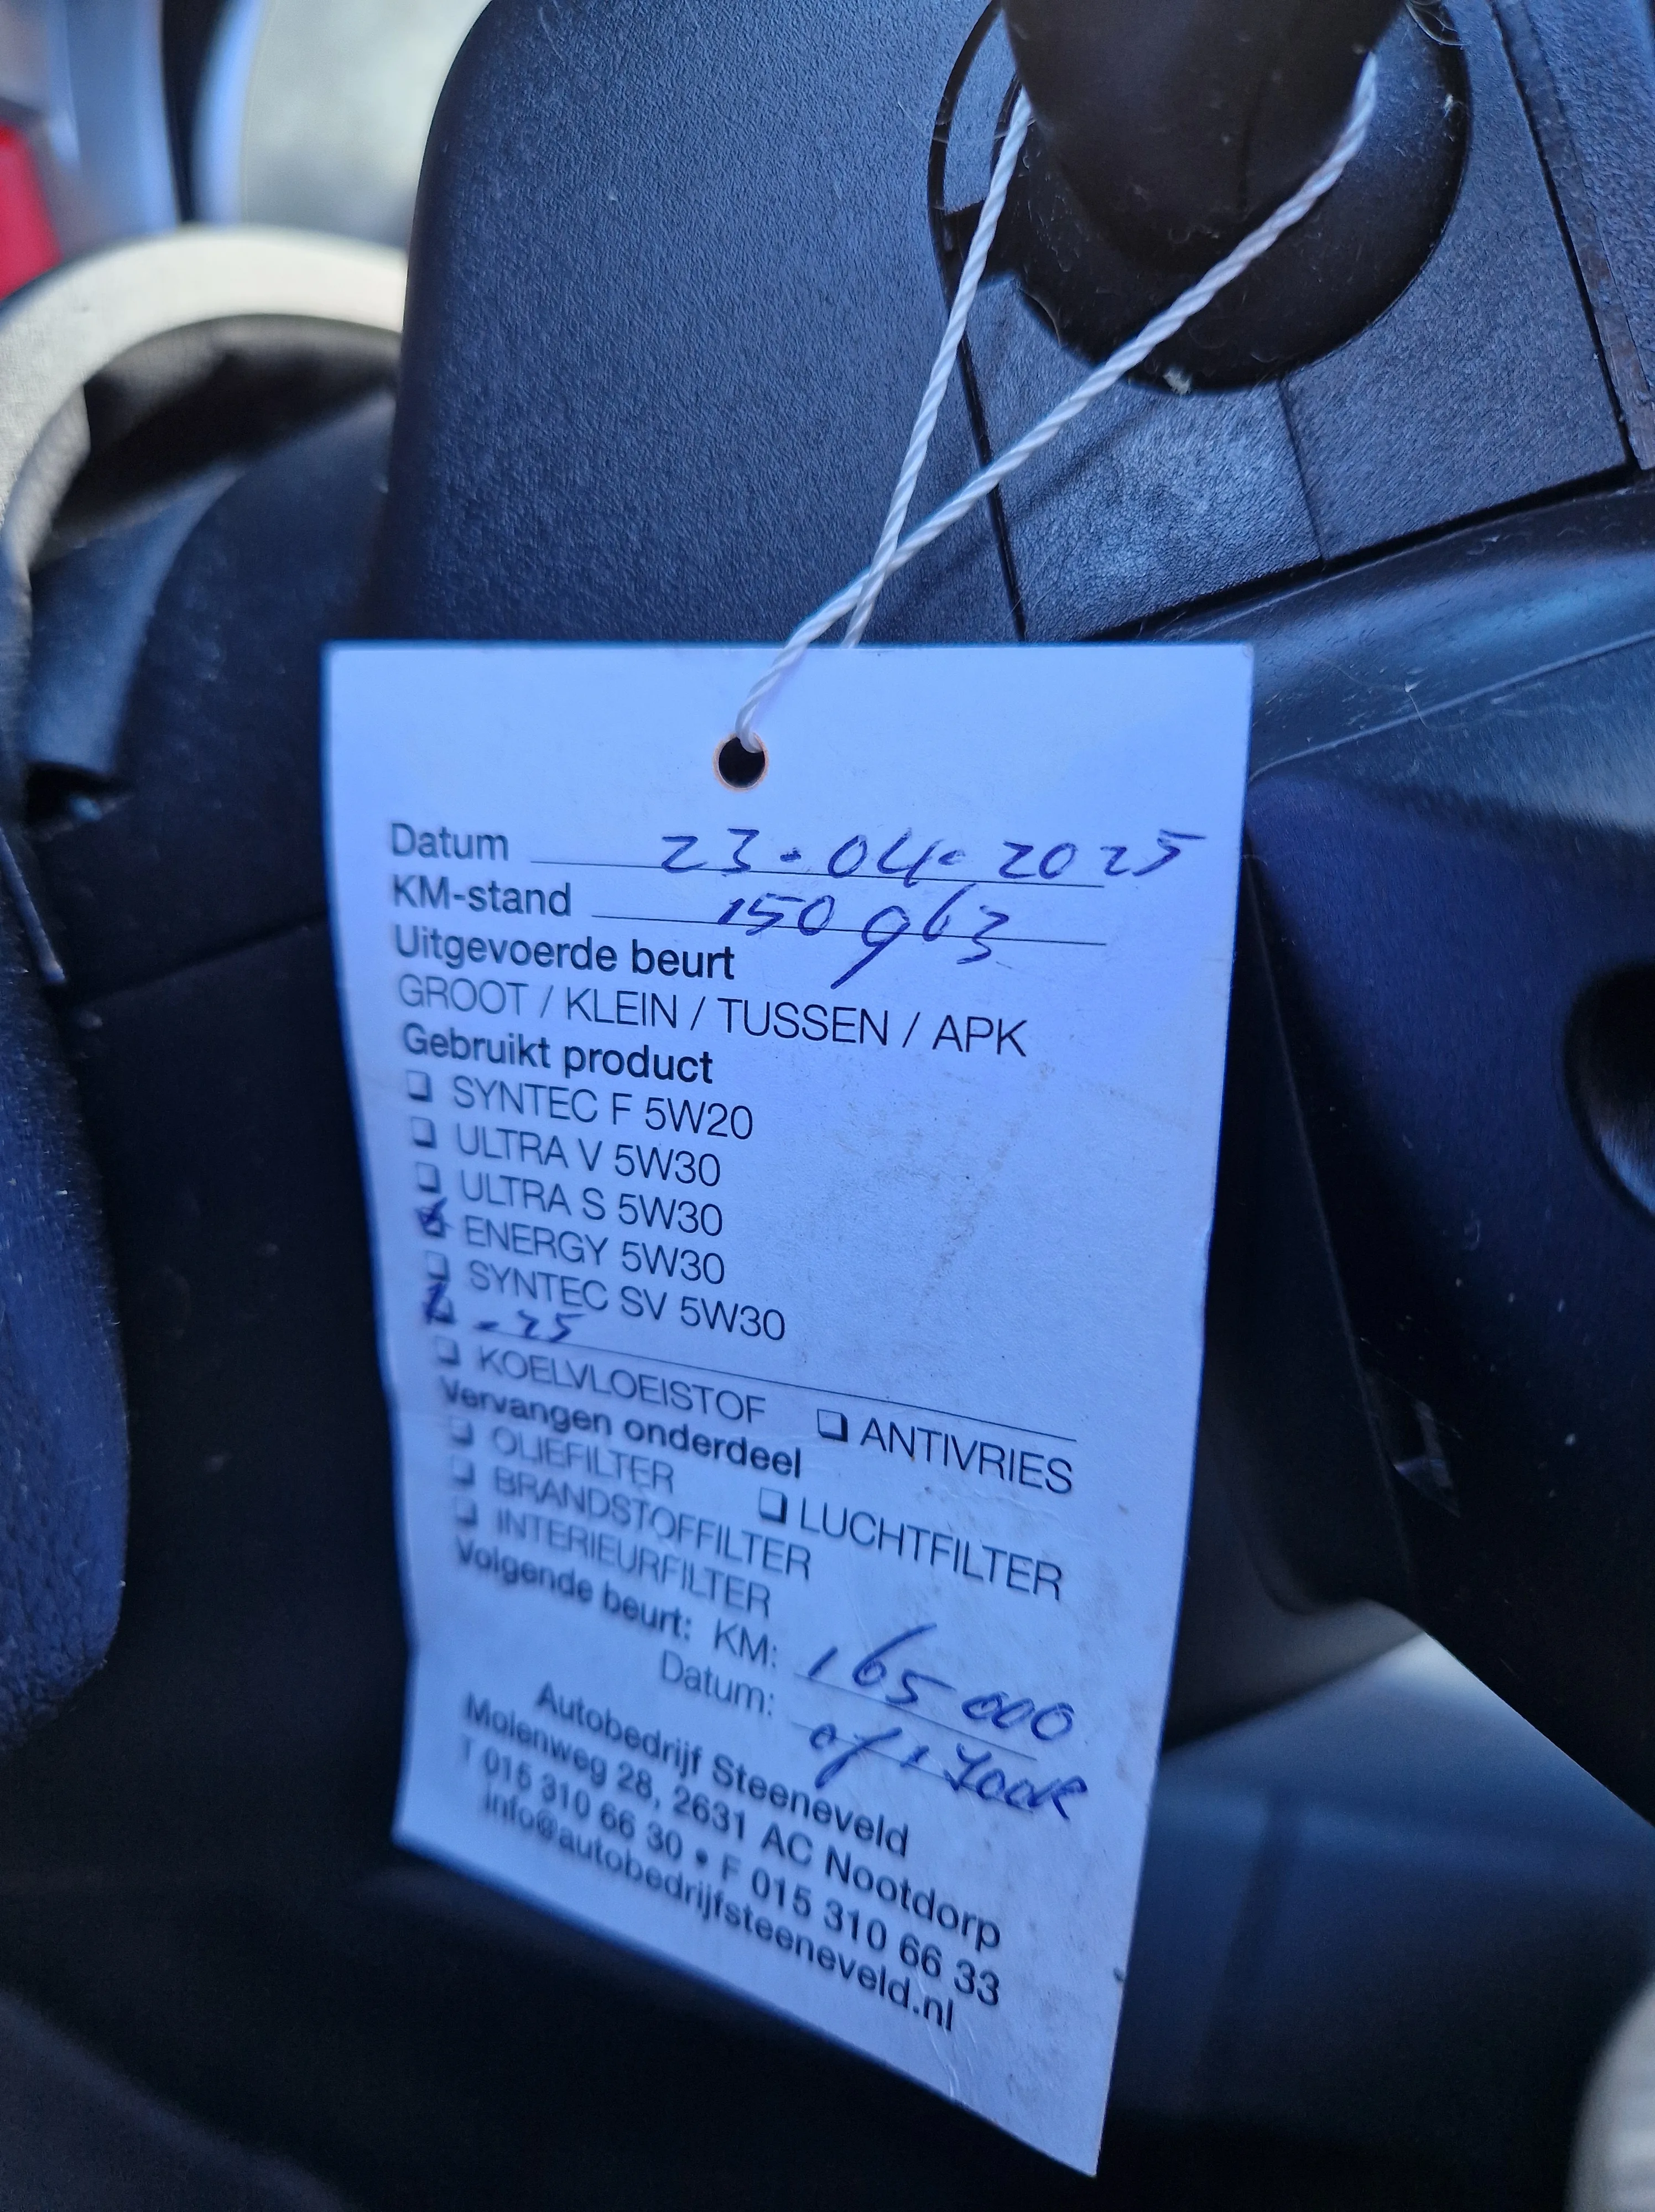 Datum 23-04-2025
KM-stand 150963
Uitgevoerde beurt
GROOT / KLEIN / TUSSEN / APK
Gebruikt product
SYNTEC F 5W20
ULTRA V 5W30
ULTRA S 5W30
ENERGY 5W30
SYNTEC SV 5W30
-25
KOELVLOEISTOF ANTIVRIES
Vervangen onderdeel
OLIEFILTER LUCHTFILTER
BRANDSTOFFILTER
INTERIEURFILTER
Volgende beurt: KM: 165000
Datum: of 1
Autobedrijf Steeneveld
Molenweg 28, 2631 AC Nootdorp
T 015 310 66 30 • F 015 310 66 33
info@autobedrijfsteeneveld.nl